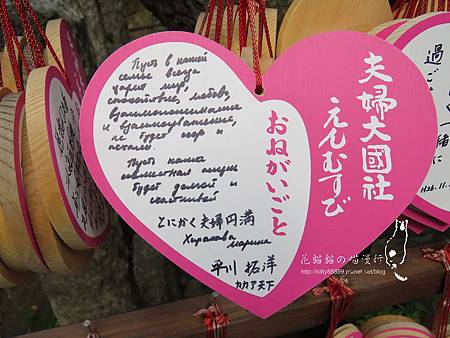 夫婦大國社
えんむすび
おねがいごと
Пусть в нашей
семье всегда
царит мир,
спокойствие, любовь,
взаимопонимание
и взаимоуважение,
не будет ссор и
печали.
Пусть наша
совместная жизнь
будет долгой и
счастливой
とにかく夫婦円満
Хиракава
Марина
平川 拓洋
カカア天下
過
ごと
一緒
に
H26.11.
花貓貓の喵漫行
http://kitty88699.pixnet.net/blog